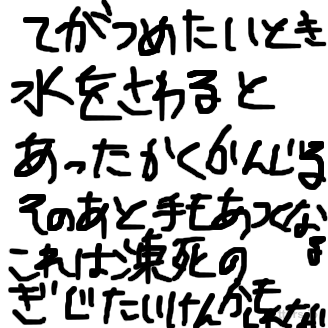 てがつめたいとき
水をさわると
あったかくかんじる
そのあと手もあつくなる
これは凍死の
ぎじたいけんかもしれない